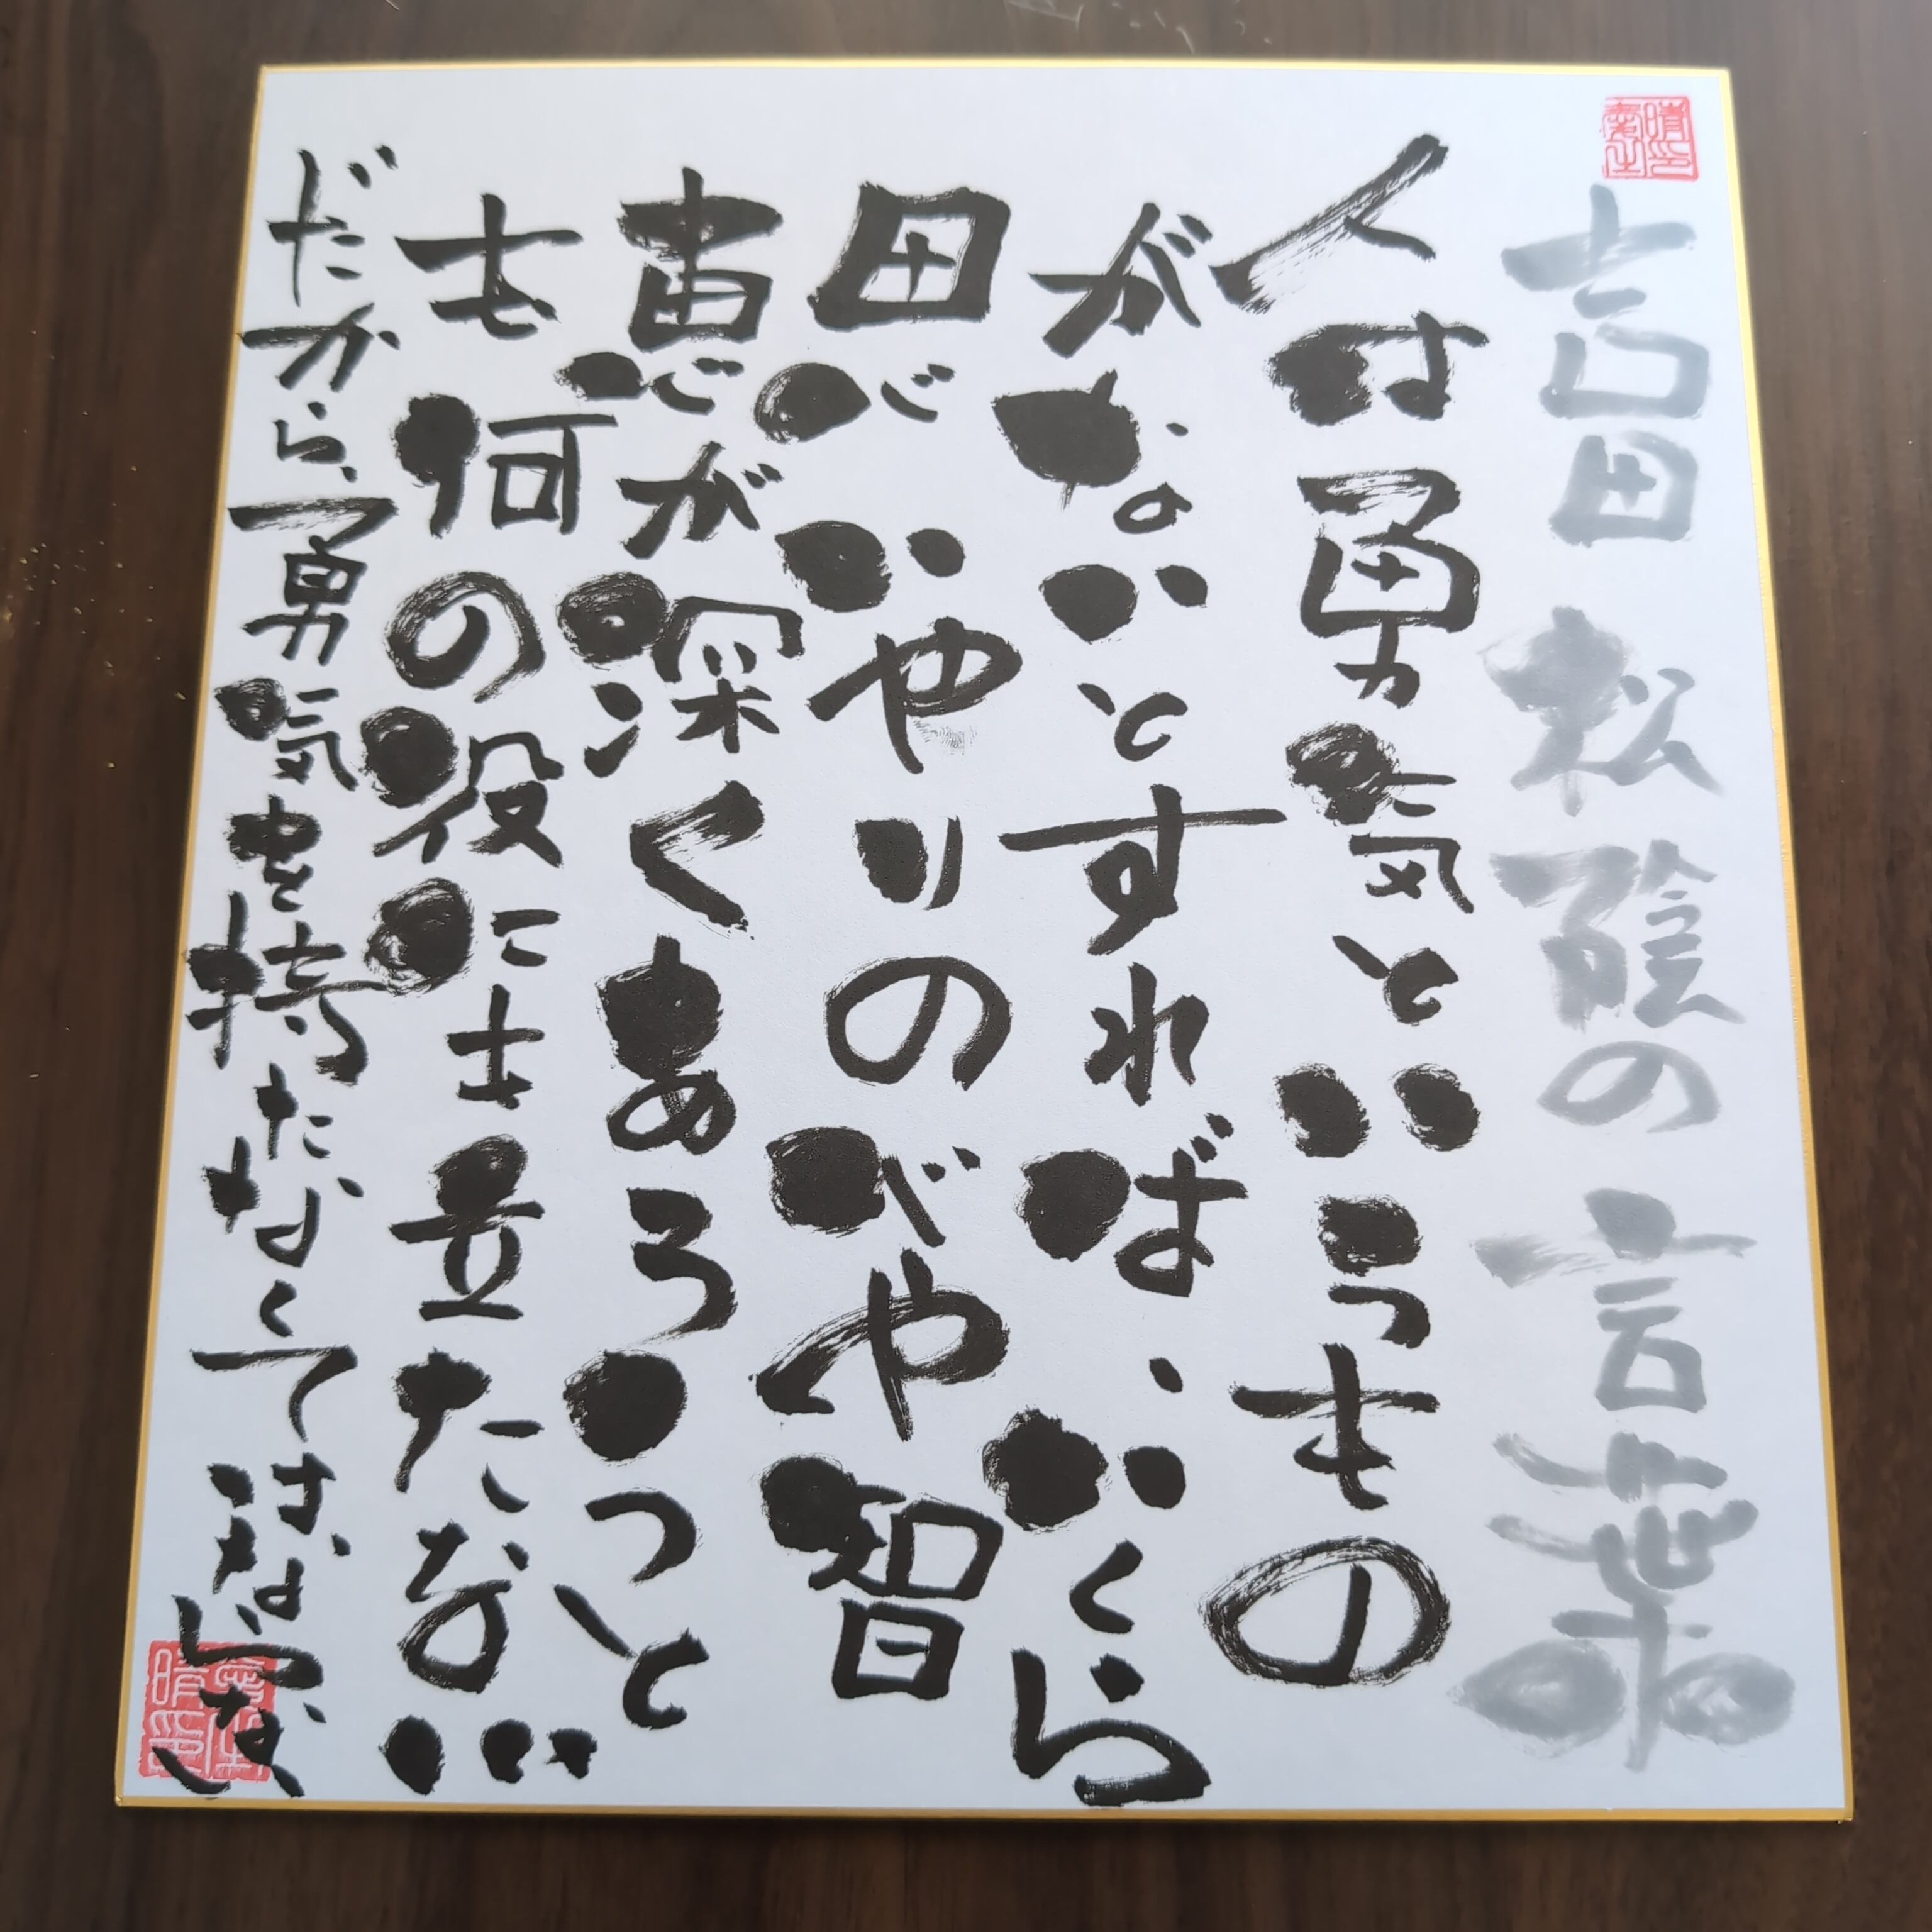 吉田松陰の言葉
人は勇気というもの
がないとすれば、いくら
思いやりの心や智
恵が深くあろうと
も何の役にも立たない
だから、勇気を持たなくてはならない